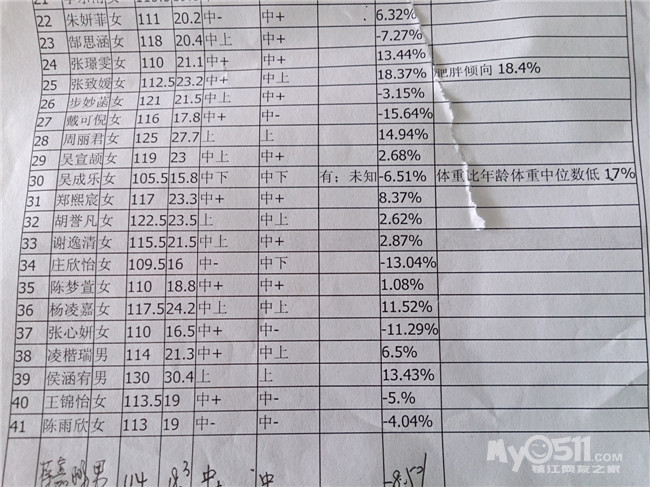 22 朱妍菲 女 111 20.2 中- 中+ 6.32%
23 郜思涵 女 118 20.4 中上 中+ -7.27%
24 张璟雯 女 110 21.1 中+ 中+ 13.44%
25 张致媛 女 112.5 23.2 中+ 中上 18.37% 肥胖倾向 18.4%
26 步妙菡 女 121 21.5 中上 中+ -3.15%
27 戴可倪 女 116 17.8 中+ 中- -15.64%
28 周丽君 女 125 27.7 上 上 14.94%
29 吴宣颉 女 119 23 中上 中+ 2.68%
30 吴成乐 女 105.5 15.8 中下 中下 有；未知 -6.51% 体重比年龄体重中位数低 17%
31 郑熙宸 女 117 23.3 中+ 中+ 8.37%
32 胡誉凡 女 122.5 23.5 上 中上 2.62%
33 谢逸清 女 115.5 21.5 中上 中+ 2.87%
34 庄欣怡 女 109.5 16 中- 中下 -13.04%
35 陈梦萱 女 110 18.8 中+ 中+ 1.08%
36 杨凌嘉 女 117.5 24.2 中上 中上 11.52%
37 张心妍 女 110 16.5 中+ 中- -11.29%
38 凌楷瑞 男 114 21.3 中+ 中上 6.5%
39 侯涵宥 男 130 30.4 上 上 13.43%
40 王锦怡 女 113.5 19 中+ 中- -5.%
41 陈雨欣 女 113 19 中- 中- -4.04%
男 114 18.3 中+ 中
My0511.com
镇江网友之家